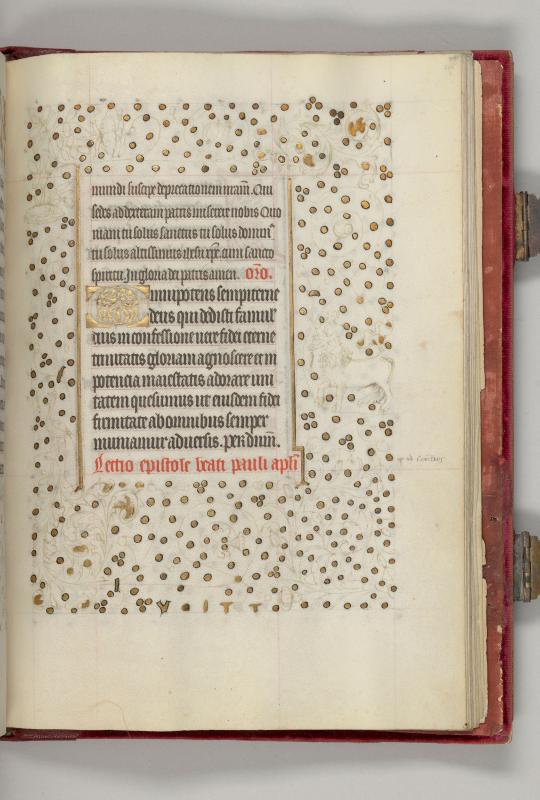 mundi suscipe deprecationem nr̄am. Qui
sedes ad dexteram patris miserere nobis Quo
niam tu solus sanctus tu solus domin⁹
tu solus altissimus ih̄u xp̄e. cum sancto
spiritu In gloria dei patris amen. or̄o.
Omnipotens sempiterne
deus qui dedisti famul'
tuis in confessione vere fidei eterne
trinitatis gloriam agnoscere et in
potencia maiestatis adorare uni
tatem quesumus ut eiusdem fidei
firmitate ab omnibus semper
muniamur adversis. per dn̄m.
Lectio epistole beati pauli apl̄i